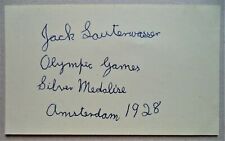 Jack Lauterwasser
Olympic Games
Silver Medalist
Amsterdam, 1928